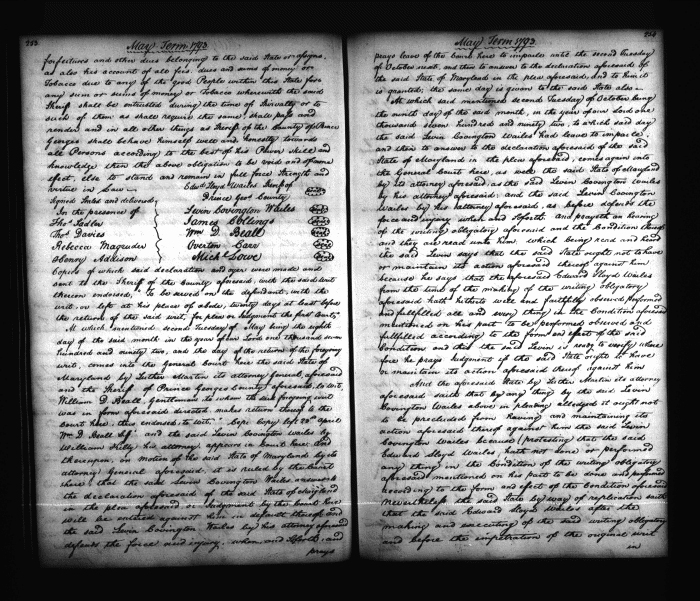 253
May Term 1793
forfeitures and other dues belonging to the said State or assigns,
as also his account of all fees, dues and sums of money or
Tobacco due to any of the good People within this State for
any sum or sums of money or Tobacco wherewith the said
Sheriff shall be entrusted during the time of Sherivalty or to
such of them as shall require the same, shall pass and
render and in all other things as Sheriff of the County of Prince
Georges shall behave himself well and honestly towards
all Persons according to the best of his Power, Skill and
Knowledge then the above obligation to be void and of none
effect, else to stand and remain in full force Strength and
virtue in Law
Signed Sealed and delivered
In the presence of
Thos. Sadler
Thos. Davies
Rebecca Magruder
Henry Addison
Edwd. Lloyd Wailes Sheriff of
Prince Geos. County
Levin Covington Wailes
James Edlings
Wm. D. Beall
Overton Carr
Michl. Lowe
Copies of which said declaration and oyer were made and
sent to the Sheriff of the County aforesaid, with the said writ
thereon endorsed, "To be served on the defendant, with the
writ, or left at his place of abode, twenty days at least before
the return of the said writ, for plea or Judgment the first Court"
At which mentioned second Tuesday of May being the eighth
day of the said month in the year of our Lord one thousand seven
hundred and ninety two, and the day of the return of the foregoing
writ, comes into the General Court here the said State of
Maryland by Luther Martin its attorney General, aforesaid
and the Sheriff of Prince Georges County aforesaid, to wit,
William D. Beall, Gentleman, to whom the said foregoing writ
was in form aforesaid directed, makes return thereof to the
Court here, thus endorsed, to wit, "Cepi Copy left 20th April
Wm. D. Beall Shff" and the said Levin Covington Wailes by
William Kilty his attorney appears in Court here and
thereupon, on motion of the said State of Maryland by its
attorney General aforesaid, it is ruled by the Court
here, that the said Levin Covington Wailes answer to
the declaration aforesaid of the said State of Maryland
in the plea aforesaid or Judgment by the Court here
will be entered against him in default thereof and
the said Levin Covington Wailes by his attorney aforesaid
defends the force and injury, when, and so forth, and
prays
254
May Term 1793.
prays leave of the Court here to imparle until the second Tuesday
of October next, and then to answer to the declaration aforesaid of
the said State of Maryland in the plea aforesaid, and to him it
is granted; the same day is given to the said State also
At which said mentioned second Tuesday of October being
the ninth day of the said month, in the year of our Lord one
thousand seven hundred and ninety two, to which said day
the said Levin Covington Wailes had leave to imparle,
and then to answer to the declaration aforesaid of the said
State of Maryland in the plea aforesaid, comes again into
the General Court here, as well the said State of Maryland
by its attorney aforesaid, as the said Levin Covington Wailes
by his attorney aforesaid; and the said Levin Covington
Wailes by his attorney aforesaid, as before defends the
force and injury when and so forth, And prayeth an hearing
of the writing obligatory aforesaid and the Condition thereof
and they are read unto him, which being read and heard
the said Levin says that the said State ought not to have
or maintain its action aforesaid thereof against him
because he says that the aforesaid Edward Lloyd Wailes
from the time of the making of the writing obligatory
aforesaid hath hitherto well and faithfully observed performed
and fullfilled all and every thing in the Condition aforesaid
mentioned on his part to be performed observed and
fullfilled according to the form and effect of the said
Condition and this the said Levin is ready to verify where
fore he prays Judgment if the said State ought to have
or maintain its action aforesaid thereof against him
And the aforesaid State by Luther Martin its attorney
aforesaid saith that by any thing by the said Levin
Covington Wailes above in pleading alledged it ought not
to be precluded from having and maintaining its
action aforesaid thereof against him the said Levin
Covington Wailes because (protesting that the said
Edward Lloyd Wailes, hath not done or performed
any thing in the Condition of the writing obligatory
aforesaid mentioned on his part to be done and performed
according to the form and effect of the Condition aforesaid
Nevertheless the said State by way of replication saith
that the said Edward Lloyd Wailes after the
making and executing of the said writing obligatory
and before the impetration of the original writ
in